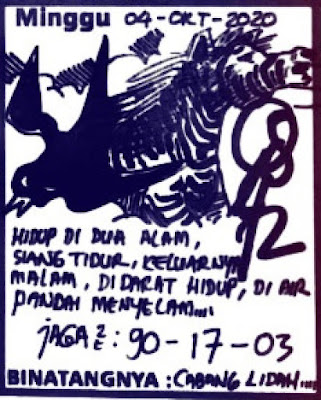 Minggu 04-OKT-2020
HIDUP DI DUA ALAM,
SIANG TIDUR, KELUARNYA
MALAM, DI DARAT HIDUP, DI AIR
PANDAI MENYELAM....
JAGA : 90-17-03
BINATANGNYA : CABANG LIDAH....